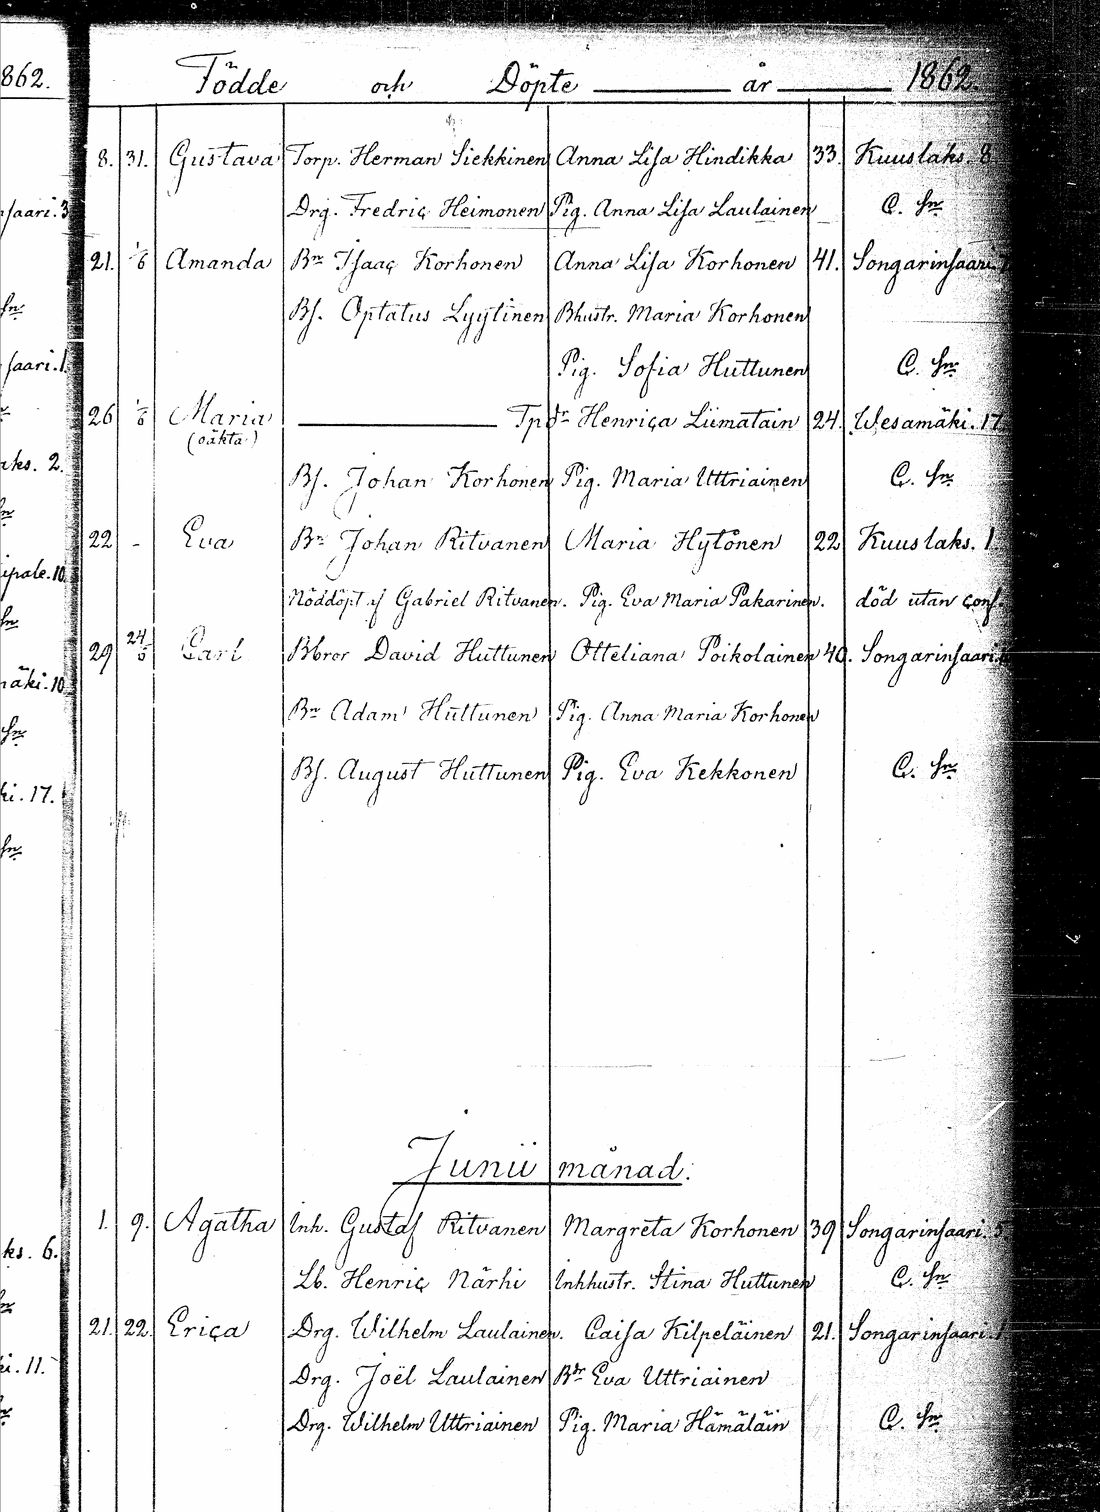 862.
Födde och Döpte år 1862.
8. 31. Gustava Torp. Herman Siekkinen Anna Lisa Hindikka 33. Kuuslaks. 8
saari. 3 Drg. Fredric Heimonen Pig. Anna Lisa Laulainen C. Sn
21. 1/6 Amanda Bn Isaac Korhonen Anna Lisa Korhonen 41. Songarinsaari.
Sn Bs. Optatus Lyytinen Bhustr. Maria Korhonen
saari. 1. Pig. Sofia Huttunen C. Sn
26 1/6 Maria Tpdr Henrica Liimatain 24. Wesamäki. 17
(oäkta)
aks. 2. Bs. Johan Korhonen Pig. Maria Uttriainen C. Sn
22 - Eva Bn Johan Ritvanen Maria Hytönen 22 Kuuslaks. 1.
ipale. 10. Nöddöpt af Gabriel Ritvanen. Pig. Eva Maria Pakarinen. död utan conf.
Sn
29 24/6 Carl Bbror David Huttunen Otteliana Poikolainen 40. Songarinsaari.
mäki. 10 Bn Adam Huttunen Pig. Anna Maria Korhonen
Sn
ki. 17. Bs. August Huttunen Pig. Eva Kekkonen C. Sn
Sn
Junii månad.
1. 9. Agatha Inh. Gustaf Ritvanen Margreta Korhonen 39 Songarinsaari. 5
ks. 6. Lb. Henric Närhi Inhhustr. Stina Huttunen C. Sn
21. 22. Erica Drg. Wilhelm Laulainen. Caisa Kilpeläinen 21. Songarinsaari. 1
ki. 11. Drg. Joël Laulainen Bdr Eva Uttriainen
Drg. Wilhelm Uttriainen Pig. Maria Hämäläin C. Sn